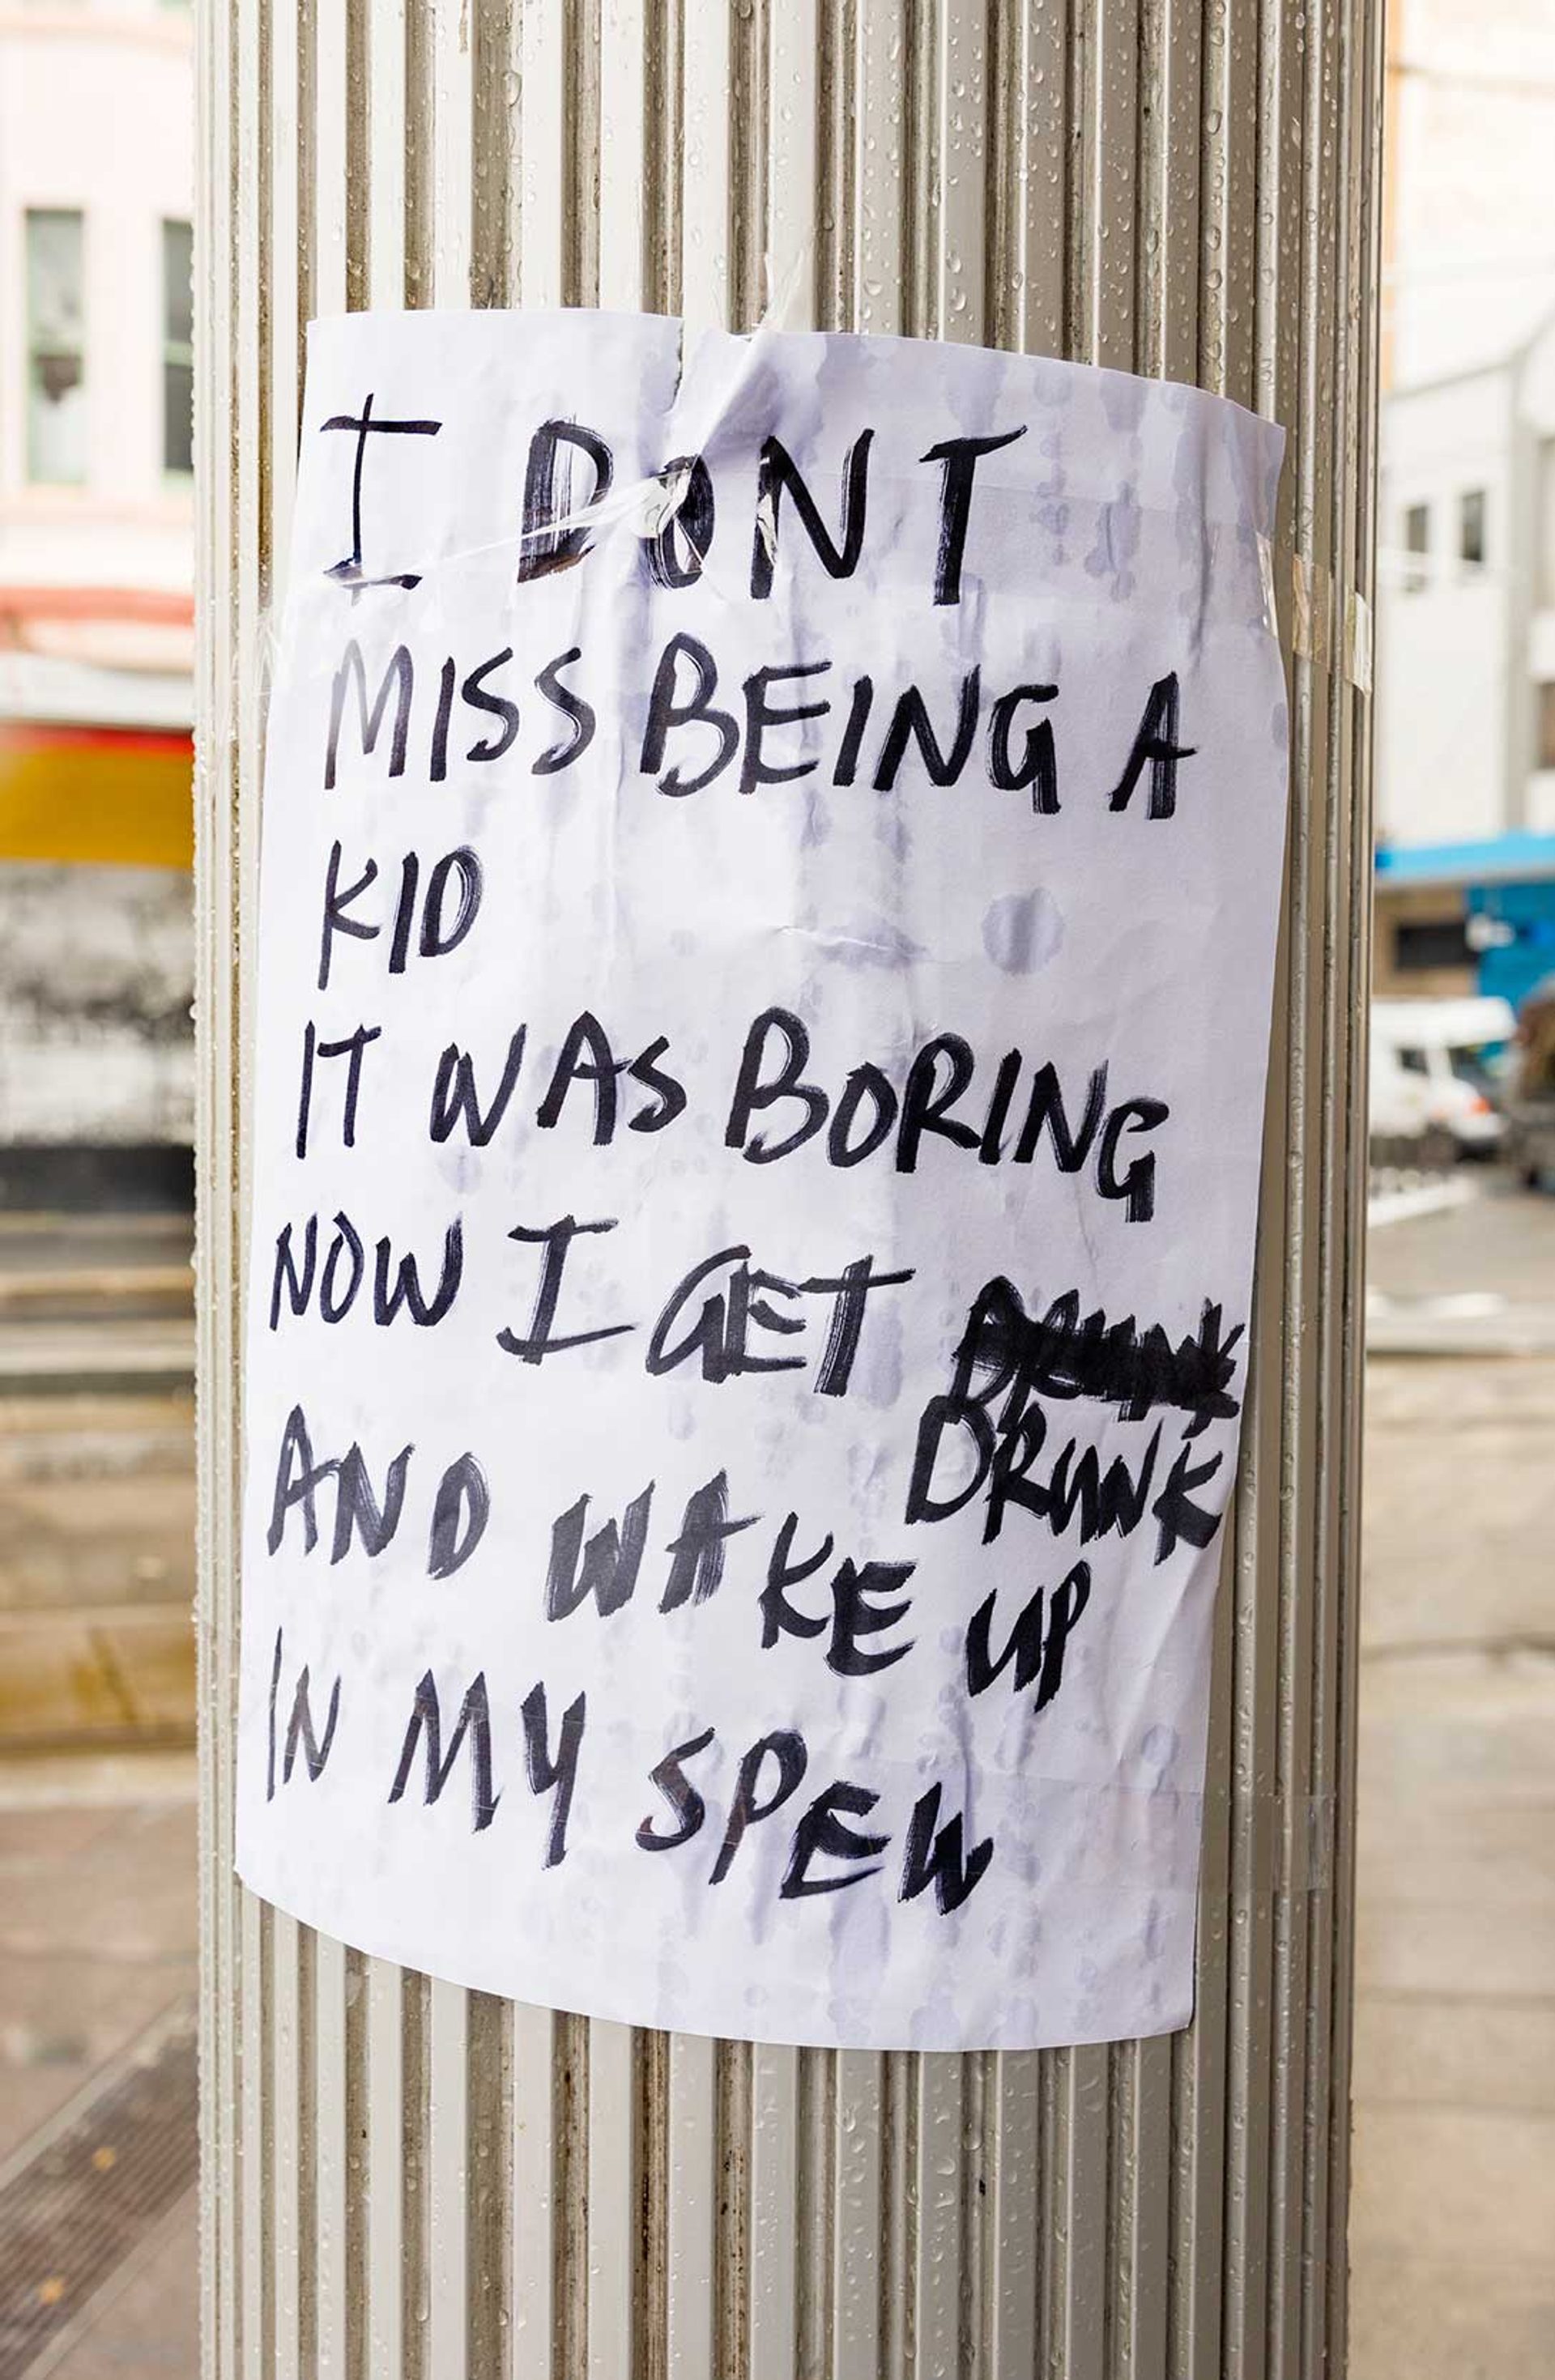 I DONT
MISS BEING A
KID
IT WAS BORING
NOW I GET
DRUNK
AND WAKE UP
IN MY SPEW